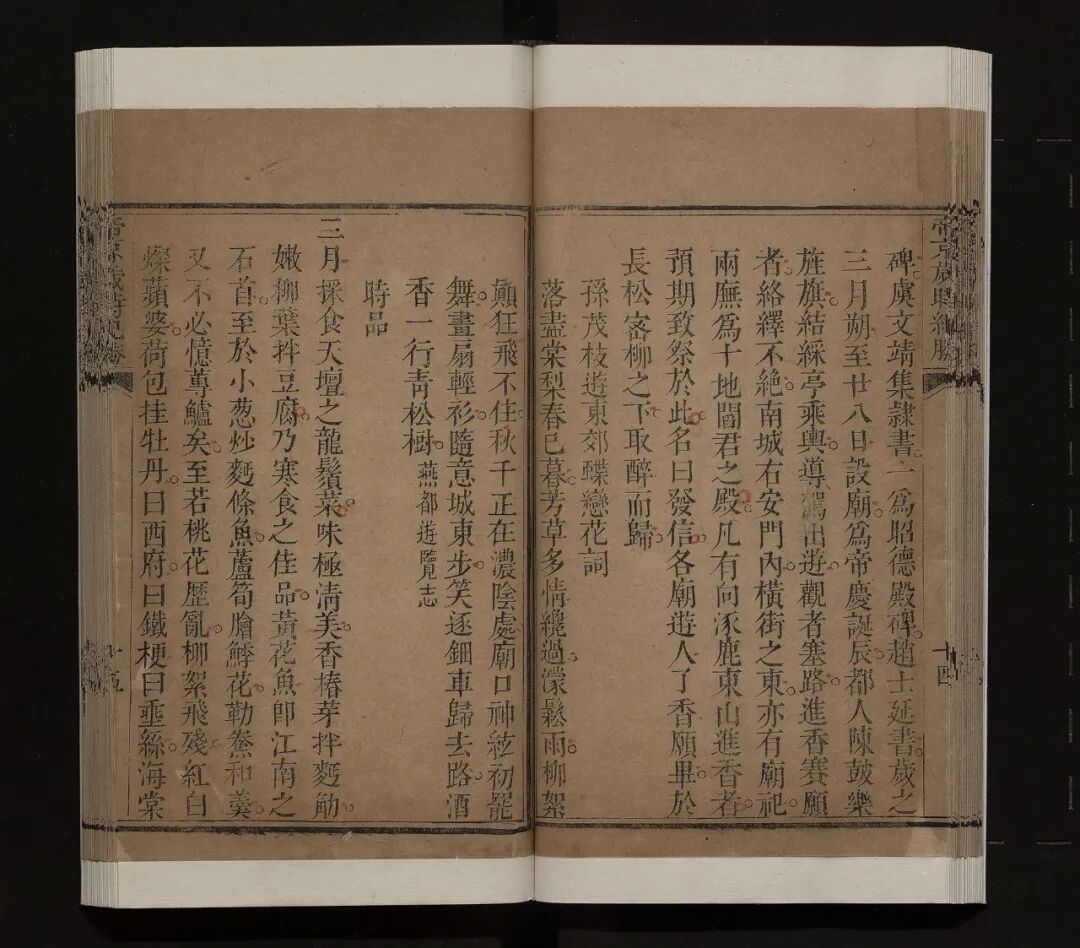 帝京歲時紀勝
十四
碑。虞文靖集隸書。一爲昭德殿碑。趙士延書。歲之
三月朔至廿八日設廟。爲帝慶誕辰。都人陳鼓樂
旌旗。結綵亭乘輿。導駕出遊。觀者塞路。進香賽願
者。絡繹不絶。南城右安門內。橫街之東。亦有廟祀。
兩廡爲十地閻君之殿。凡有向涿鹿東山進香者。
預期致祭於此。名曰發信。各廟遊人。了香願畢。於
長松密柳之下。取醉而歸。
孫茂枝遊東郊蝶戀花詞
落盡棠梨春已暮。芳草多情。纔過濛鬆雨。柳絮
顚狂飛不住。秋千正在濃陰處。廟口神絃初罷
舞。畫扇輕衫。隨意城東步。笑逐鈿車歸去路。酒
香一行靑松樹。燕都遊覽志
時品
三月採食天壇之龍鬚菜。味極淸美。香椿芽拌麪觔。
嫩柳葉拌豆腐。乃寒食之佳品。黃花魚卽江南之
石首。至於小葱炒麪條魚。蘆筍膾鱭花。勒鯗和羹。
又不必憶蓴鱸矣。至若桃花歷亂。柳絮飛殘。紅白
燦蘋婆。荷包挂牡丹。曰西府。曰鐵梗。曰垂絲。海棠
帝京歲時紀勝
十五